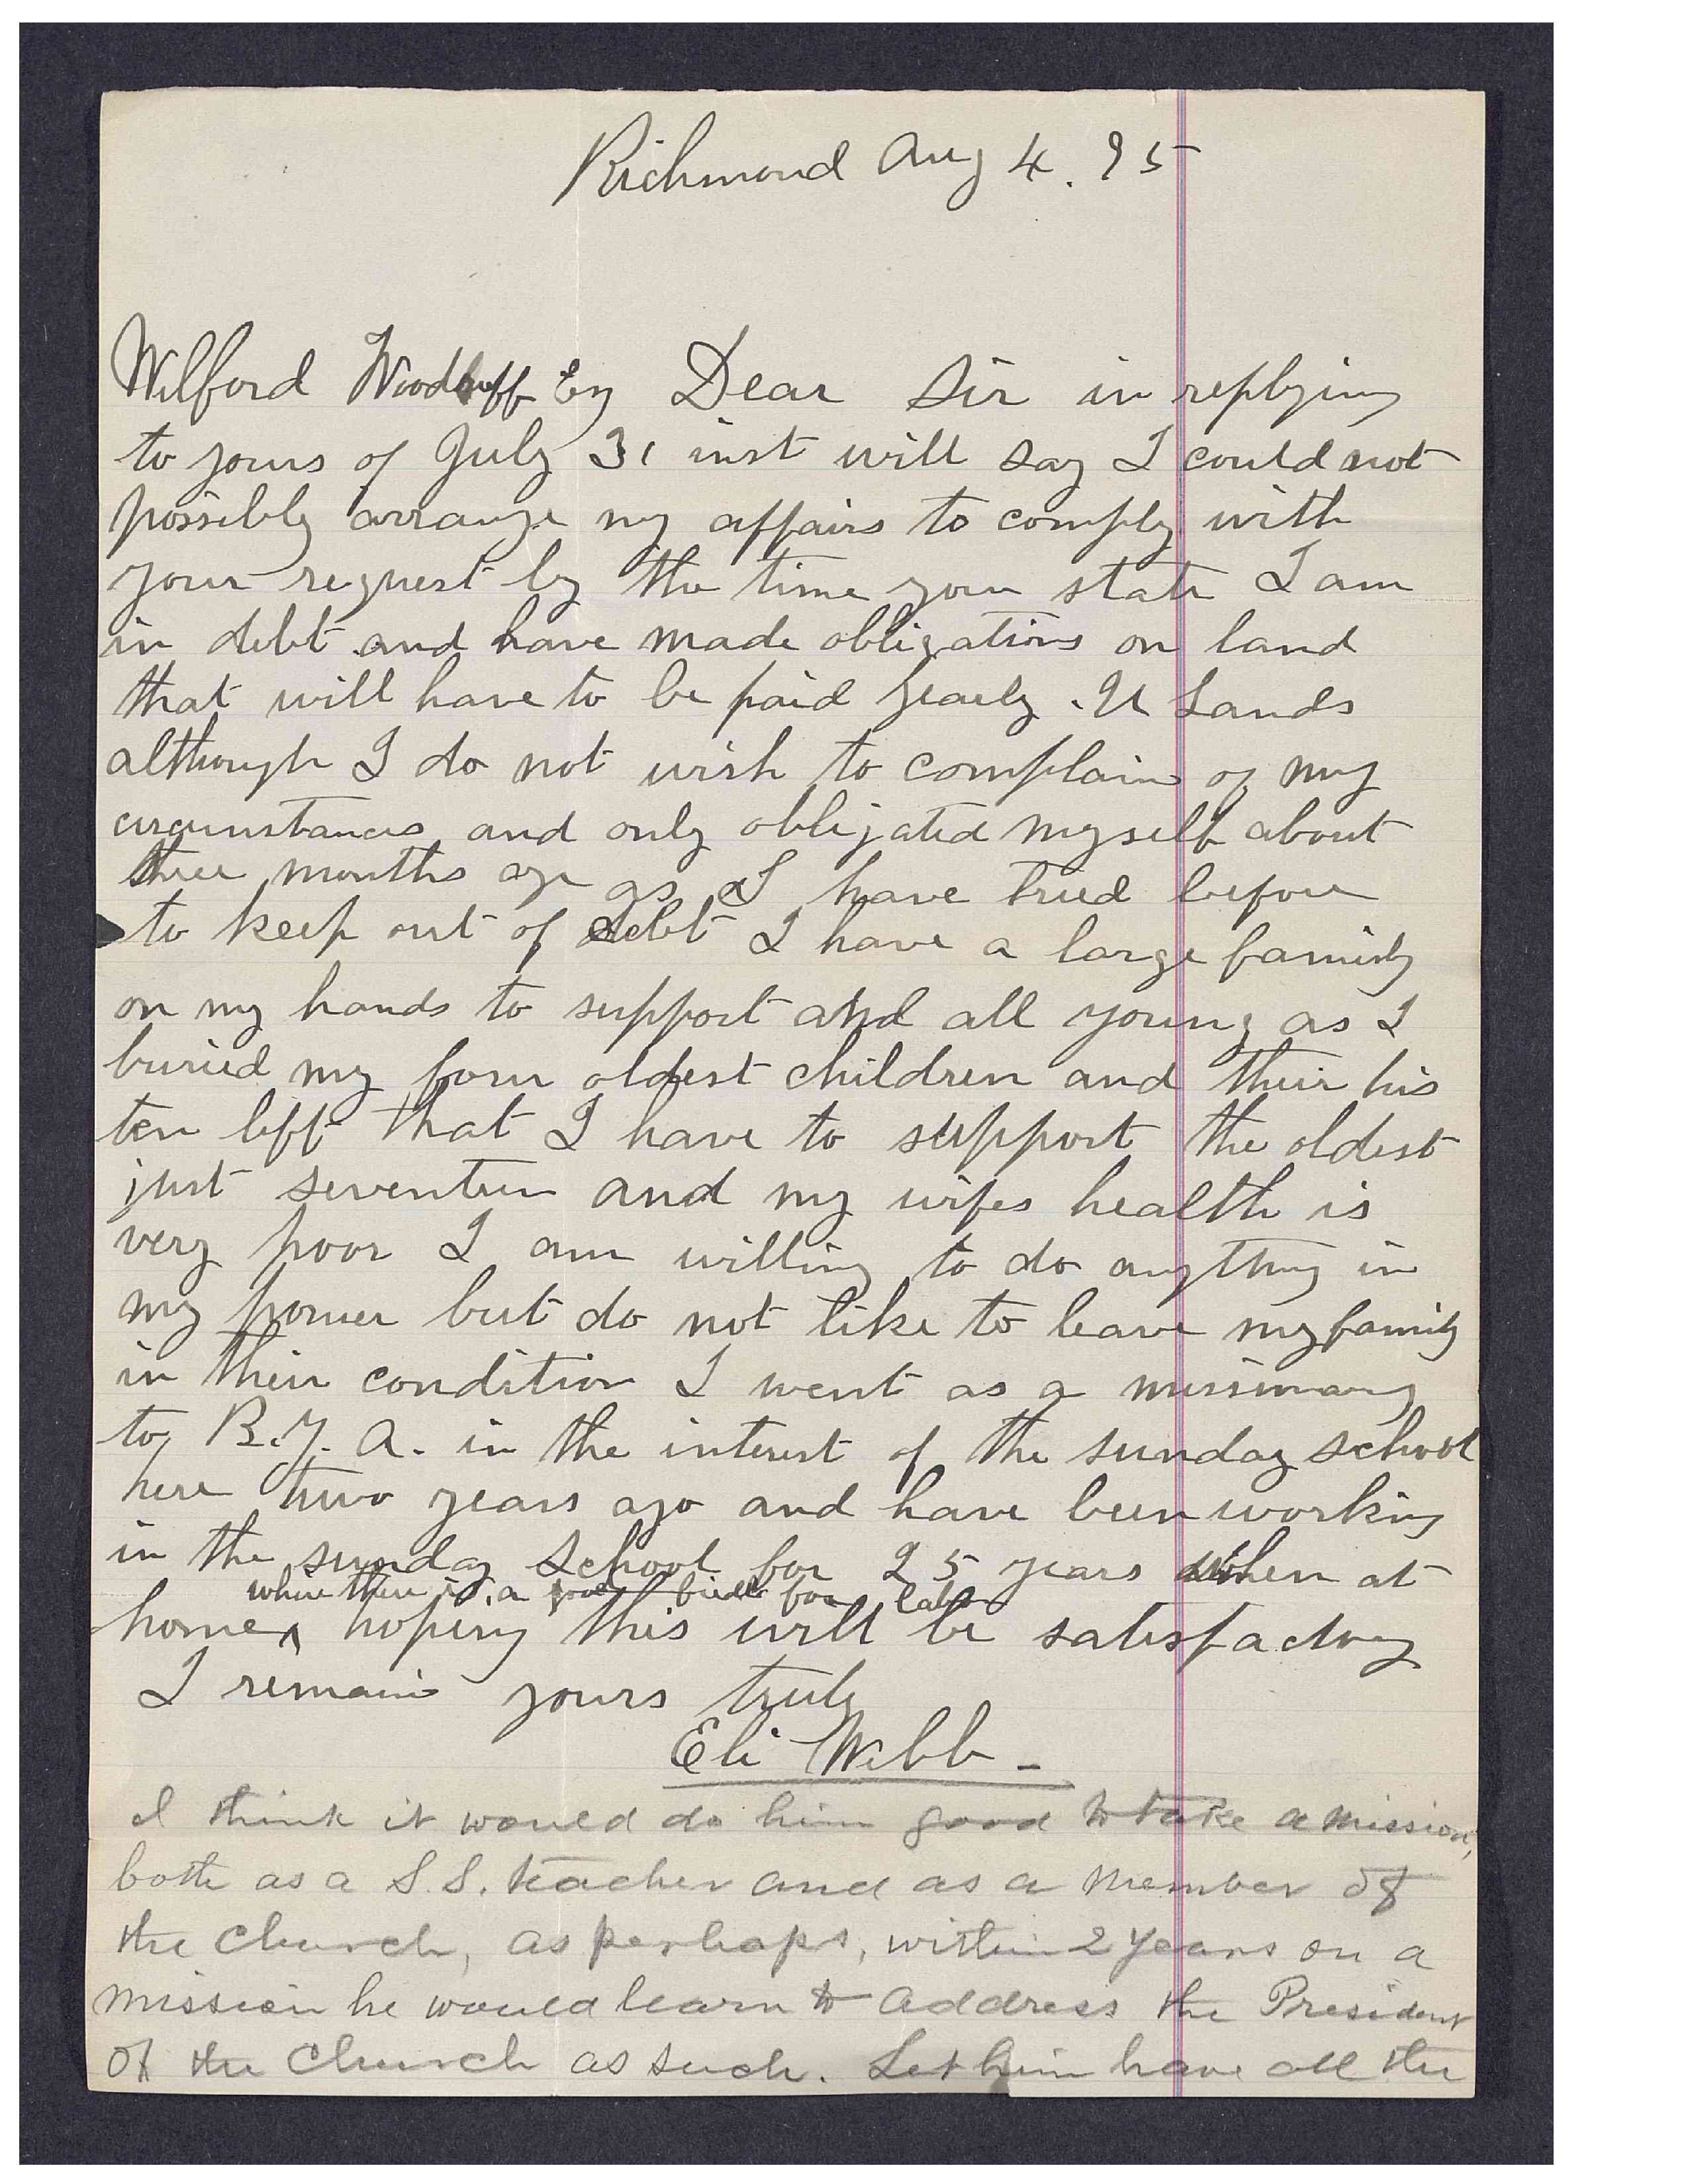 Richmond Aug 4. 95
Wilford Woodruff Esq Dear Sir in replying
to yours of July 31 inst will say I could not
possibly arrange my affairs to comply with
your request by the time you state I am
in debt and have made obligations on land
that will have to be paid yearly. U Lands
although I do not wish to complain of my
circumstances and only obligated myself about
three months ago as I have tried before
to keep out of debt I have a large family
on my hands to support and all young as I
buried my four oldest children and their his
ten left that I have to support the oldest
just seventeen and my wifes health is
very poor I am willing to do anything in
my power but do not like to leave my family
in their condition I went as a missionary
to B.Y. A. in the interest of the sunday school
here two years ago and have been working
in the sunday school for 25 years when at
where there is a good field for labor
home hoping this will be satisfactory
I remain yours truly
Eli Webb -
I think it would do him good to take a mission,
both as a S.S. teacher and as a member of
the Church, as perhaps, within 2 years on a
mission he would learn to address the President
of the Church as such. Let him have all the